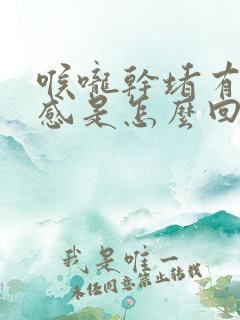 喉嚨幹堵有
感是怎麼回
我是唯一
未经同意禁止转载